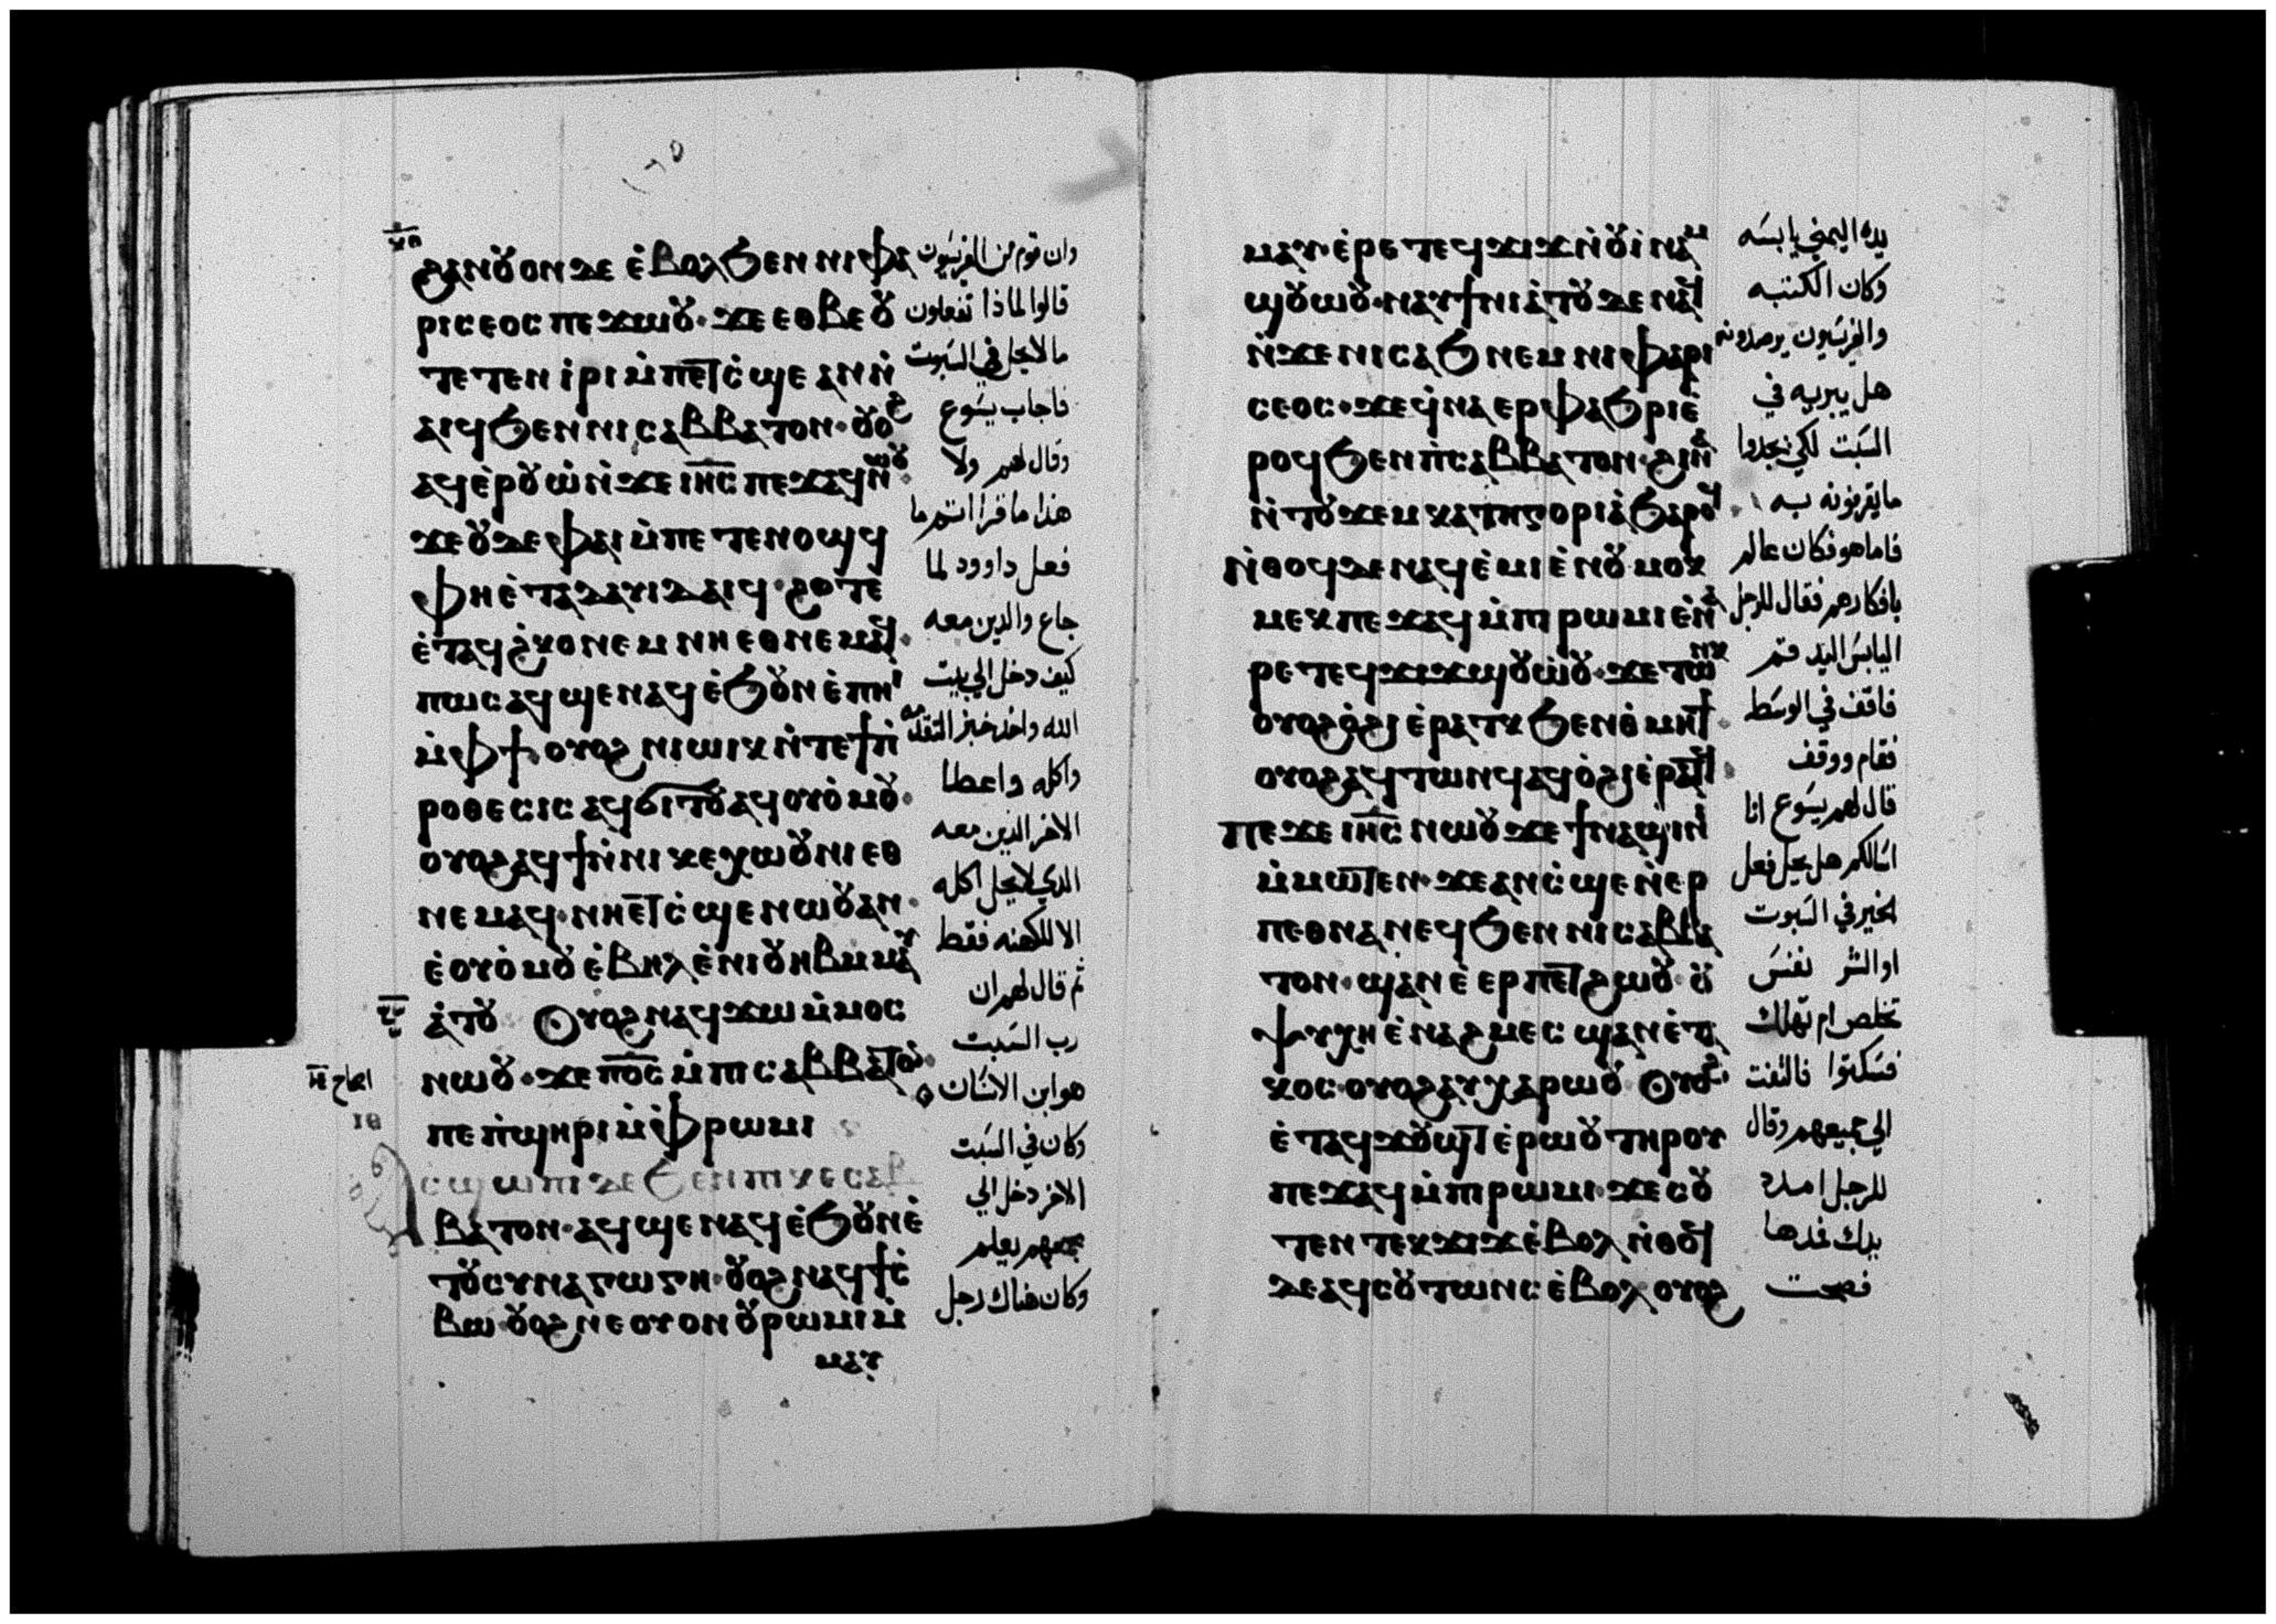 ϩⲁⲛⲟⲩⲟⲛ ⲇⲉ ⲉ̀ⲃⲟⲗ ϧⲉⲛ ⲛⲓⲫⲁ
ⲣⲓⲥⲉⲟⲥ ⲡⲉϫⲱⲟⲩ· ϫⲉ ⲉⲑⲃⲉⲟⲩ
ⲧⲉⲧⲉⲛ ⲓ̀ⲣⲓ ⲙ̀ⲡⲉⲧⲥ̀ϣⲉ ⲁⲛ ⲛ̀
ⲁⲓϥ ϧⲉⲛ ⲛⲓⲥⲁⲃⲃⲁⲧⲟⲛ· ⲟⲩⲟϩ
ⲁϥⲉ̀ⲣⲟⲩⲱ̀ ⲛ̀ϫⲉ ⲓⲏⲥ ⲡⲉϫⲁϥ ⲛⲱⲟⲩ·
ϫⲉ ⲟⲩⲇⲉ ⲫⲁⲓ ⲙ̀ⲡⲉⲧⲉⲛⲟϣϥ
ⲫⲏ ⲉ̀ⲧⲁ ⲇⲁⲩⲓⲇ ⲁⲓϥ· ϩⲟⲧⲉ
ⲉ̀ⲧⲁϥϩ̀ⲕⲟ ⲛⲉⲙ ⲛⲏ ⲉⲑⲛⲉⲙⲁϥ·
ⲡⲱⲥ ⲁϥϣⲉⲛⲁϥ ⲉ̀ϧⲟⲩⲛ ⲉ̀ⲡⲏⲓ
ⲙ̀ⲫϯ· ⲟⲩⲟϩ ⲛⲓⲱⲓⲕ ⲛ̀ⲧⲉ ϯⲡ̀
ⲣⲟⲑⲉⲥⲓⲥ ⲁϥϭⲓⲧⲟⲩ ⲁϥⲟⲩⲟ̀ⲙⲟⲩ·
ⲟⲩⲟϩ ⲁϥϯ ⲛ̀ⲛⲓⲕⲉⲭⲱⲟⲩⲛⲓ ⲉⲑ
ⲛⲉⲙⲁϥ· ⲛⲏ ⲉⲧⲥ̀ϣⲉ ⲛⲱⲟⲩ ⲁⲛ·
ⲉ̀ⲟⲩⲟ̀ⲙⲟⲩ ⲉ̀ⲃⲏⲗ ⲉ̀ⲛⲓⲟⲩⲏⲃ ⲙⲙⲁⲩ
ⲁ̀ⲧⲟⲩ ⲟⲩⲟϩ ⲛⲁϥϫⲱ ⲙ̀ⲙⲟⲥ
ⲛⲱⲟⲩ· ϫⲉ ⲡⲟⲥ ⲙ̀ⲡⲓⲥⲁⲃⲃⲁⲧⲟⲛ·
ⲡⲉ ⲡ̀ϣⲏⲣⲓ ⲙ̀ⲫ̀ⲣⲱⲙⲓ
ⲁⲥϣⲱⲡⲓ ⲇⲉ ϧⲉⲛ ⲡⲓⲕⲉⲥⲁⲃ
ⲃⲁⲧⲟⲛ· ⲁϥϣⲉⲛⲁϥ ⲉ̀ϧⲟⲩⲛ ⲉ̀
ⲧⲟⲩⲥⲩⲛⲁⲅⲱⲅⲏ· ⲟⲩⲟϩ ⲛⲁϥϯⲥ̀
ⲃⲱ· ⲟⲩⲟϩ ⲛⲉ ⲟⲩⲟⲛ ⲟⲩⲣⲱⲙⲓ ⲙ̀
ⲙⲁⲩ
وان قوم من الفريسيون
قالوا لماذا تفعلون
ما لا يحل في السبوت
فاجاب يسوع
وقال لهم ولا
هذا ما قرا انتم ما
فعل داوود لما
جاع والدين معه
كيف دخل الي بيت
الله واخد خبز التقدمه
واكله واعطا
الاخر الذين معه
الدي لا يحل اكله
الا للكهنه فقط
ثم قال لهم ان
رب السبت
هو ابن الانسان
وكان في السبت
الاخر دخل الي
مجمعهم يعلم
وكان هناك رجل
ⲙⲁⲩ· ⲉ̀ⲣⲉ ⲧⲉϥϫⲓϫ ⲛ̀ⲟⲩⲓ̀ⲛⲁⲙ
ϣⲟⲩⲱⲟⲩ· ⲛⲁⲩϯⲛⲓⲁ̀ⲧⲟⲩ ⲇⲉ ⲛⲁϥ
ⲛ̀ϫⲉ ⲛⲓⲥⲁϧ ⲛⲉⲙ ⲛⲓⲫⲁⲣⲓ
ⲥⲉⲟⲥ· ϫⲉ ϥ̀ⲛⲁⲉⲣⲫⲁϧⲣⲓ ⲉ̀
ⲣⲟϥ ϧⲉⲛ ⲡ̀ⲥⲁⲃⲃⲁⲧⲟⲛ· ϩⲓⲛⲁ
ⲛ̀ⲧⲟⲩϫⲉⲙ ⲕⲁⲧⲏⲅⲟⲣⲓⲁ̀ ϧⲁⲣⲟϥ·
ⲛ̀ⲑⲟϥ ⲇⲉ ⲛⲁϥⲉ̀ⲙⲓ ⲉ̀ⲛⲟⲩⲙⲟⲕ
ⲙⲉⲕ ⲡⲉϫⲁϥ ⲙ̀ⲡⲓⲣⲱⲙⲓ ⲉ̀ⲛⲁ
ⲣⲉ ⲧⲉϥϫⲓϫ ϣⲟⲩⲱ̀ⲟⲩ· ϫⲉ ⲧⲱⲛⲕ
ⲟⲩⲟϩ ⲟ̀ϩⲓ ⲉ̀ⲣⲁⲧⲕ ϧⲉⲛ ⲑ̀ⲙⲏϯ·
ⲟⲩⲟϩ ⲁϥⲧⲱⲛϥ ⲁϥⲟ̀ϩⲓ ⲉ̀ⲣⲁⲧϥ·
ⲡⲉϫⲉ ⲓⲏⲥ ⲛⲱⲟⲩ ϫⲉ ϯⲛⲁϣⲓⲛⲓ
ⲙ̀ⲙⲱⲧⲉⲛ· ϫⲉ ⲁⲛ ⲥ̀ϣⲉ ⲛ̀ⲉⲣ
ⲡⲉⲑⲛⲁⲛⲉϥ ϧⲉⲛ ⲛⲓⲥⲁⲃⲃⲁ
ⲧⲟⲛ· ϣⲁⲛ ⲉ̀ⲉⲣⲡⲉⲧϩⲱⲟⲩ· ⲟⲩ
ⲯⲩⲭⲏ ⲉ̀ⲛⲁϩⲙⲉⲥ ϣⲁⲛ ⲉ̀ⲧⲁ
ⲕⲟⲥ· ⲟⲩⲟϩ ⲁⲩⲭⲁⲣⲱⲟⲩ ⲟⲩⲟϩ
ⲉ̀ⲧⲁϥϫⲟⲩϣⲧ ⲉ̀ⲣⲱⲟⲩ ⲧⲏⲣⲟⲩ
ⲡⲉϫⲁϥ ⲙ̀ⲡⲓⲣⲱⲙⲓ· ϫⲉ ⲥⲟⲩ
ⲧⲉⲛ ⲧⲉⲕϫⲓϫ ⲉ̀ⲃⲟⲗ ⲛ̀ⲑⲟϥ
ⲇⲉ ⲁϥⲥⲟⲩⲧⲱⲛⲥ ⲉ̀ⲃⲟⲗ ⲟⲩⲟϩ
يده اليمني يابسه
وكان الكتبه
والفريسيون يرصدونه
هل يبريه في
السبت لكي يجدوا
ما يقرفونه به
فاما هو فكان عالم
بافكارهم فقال للرجل
اليابس اليد قم
فاقف في الوسط
فقام ووقف
قال لهم يسوع انا
اسالكم هل يحل فعل
الخير في السبوت
او الشر نفس
تخلص ام تهلك
فسكتوا فالتفت
الي جميعهم وقال
للرجل امدد
يدك فمدها
فصحت